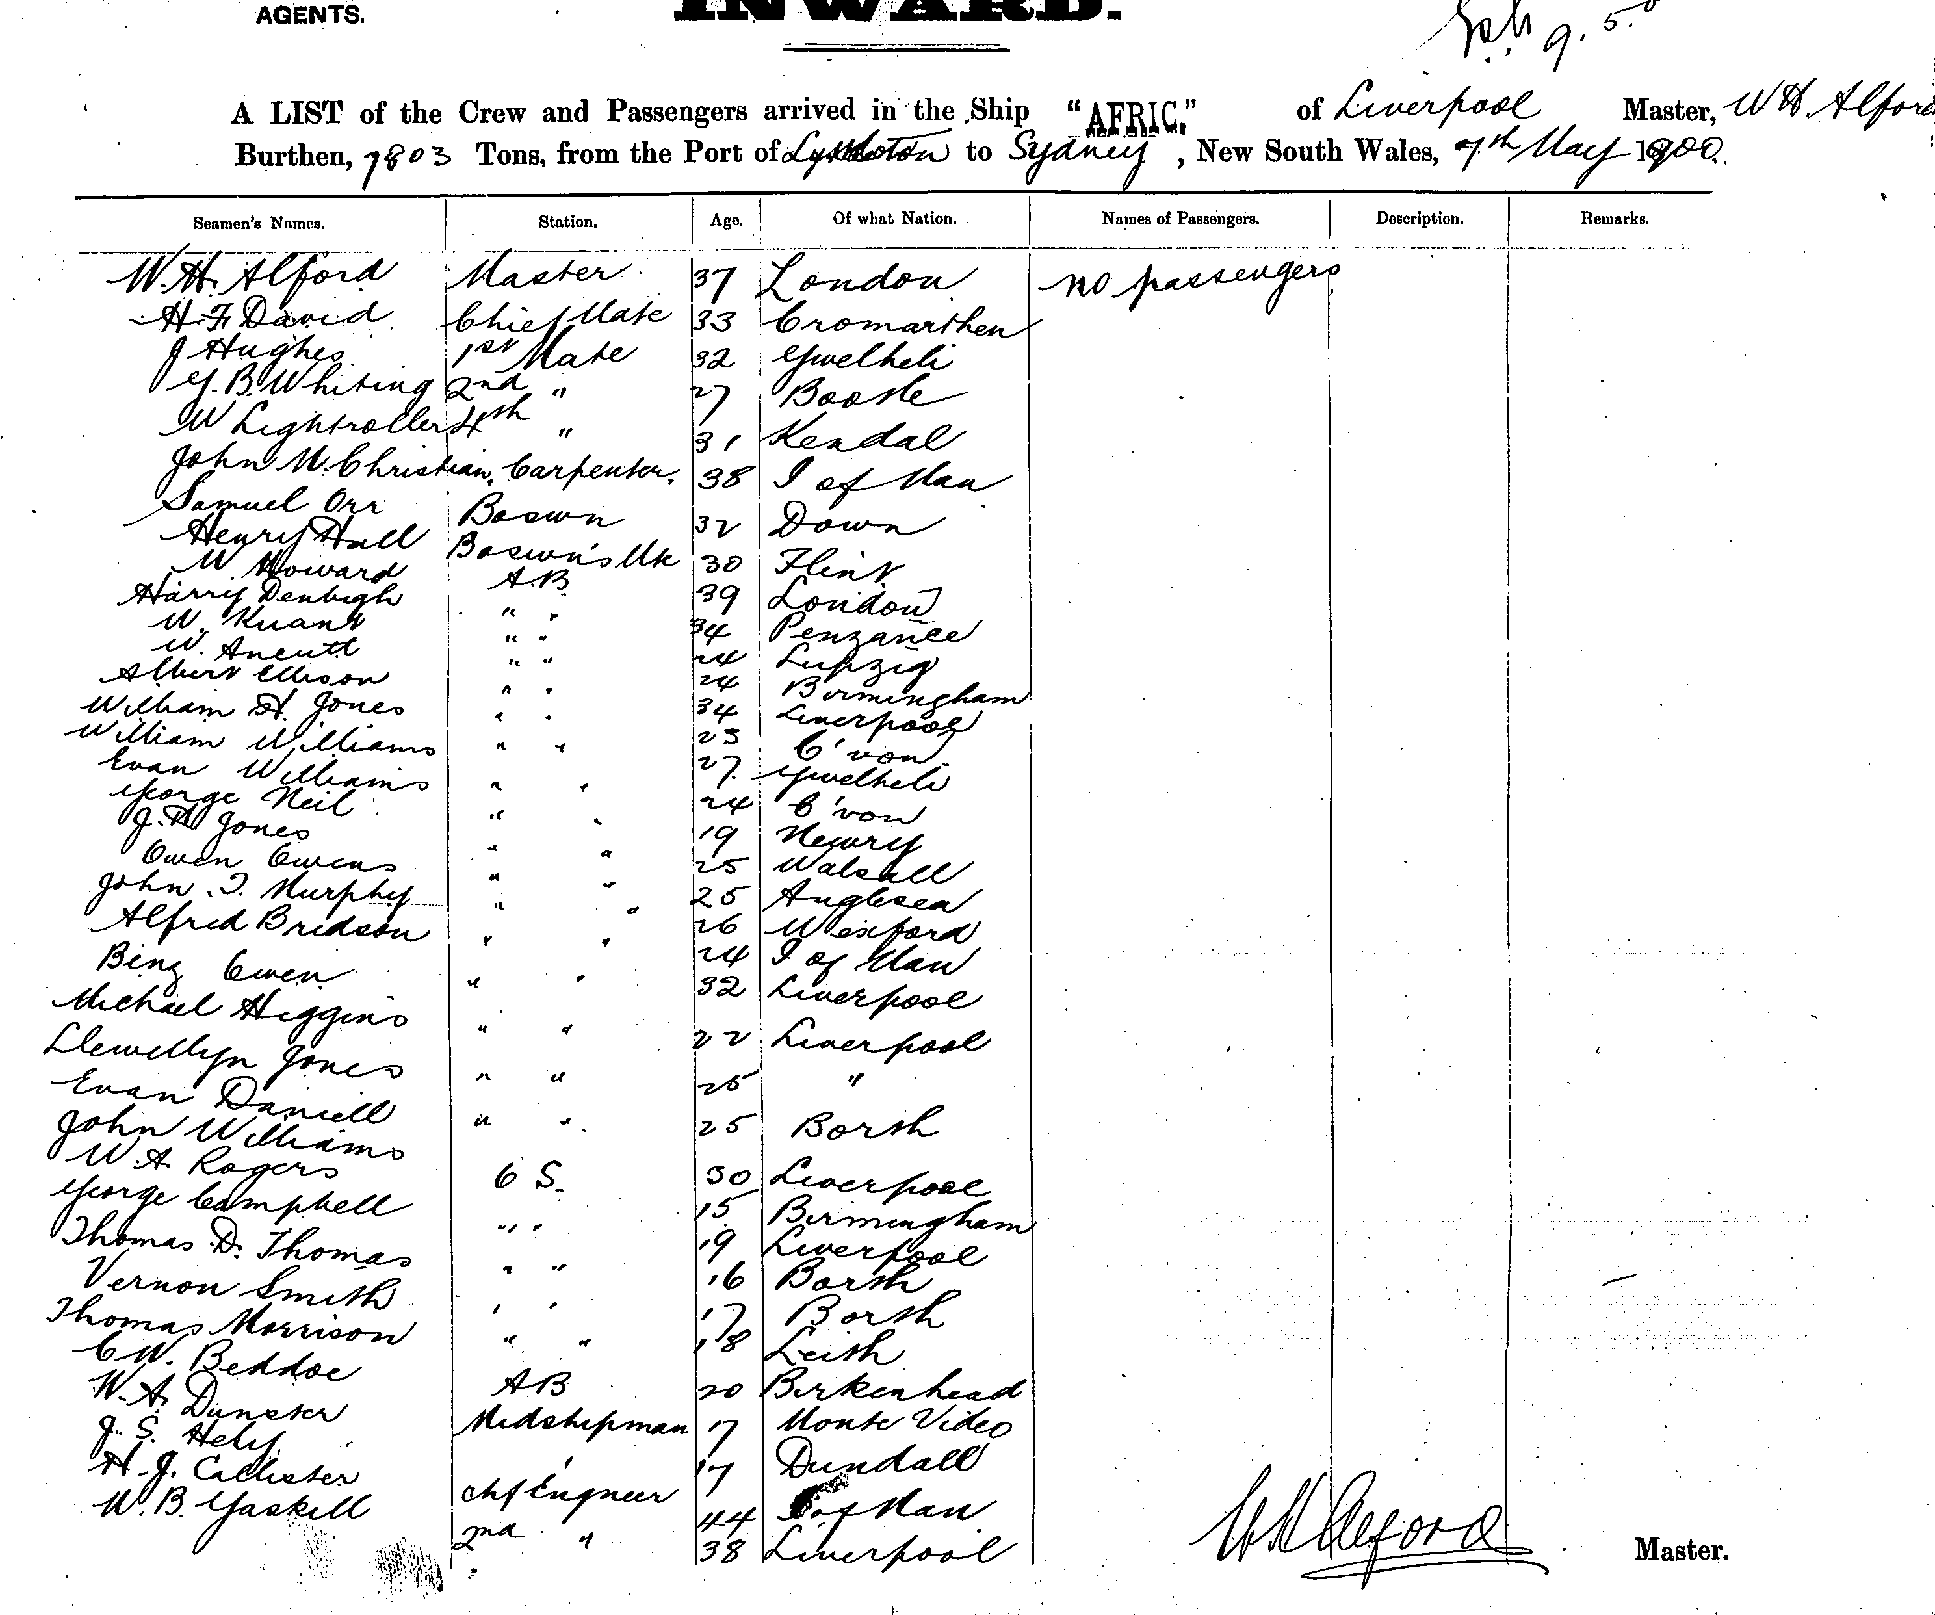 AGENTS.
INWARD.
9. 5.0
A LIST of the Crew and Passengers arrived in the Ship "AFRIC." of Liverpool Master, W H. Alford
Burthen, 7803 Tons, from the Port of Lyttleton to Sydney, New South Wales, 7th May 1900.
Seamen's Names. Station. Age. Of what Nation. Names of Passengers. Description. Remarks.
W. H. Alford Master 37 London no passengers
H. F. David Chief Mate 33 Cromarthen
J Hughes 1st Mate 32 Gwelheli
G. B. Whiting 2nd " 27 Bootle
W Lightroller 4th " 31 Kendal
John M. Christian. Carpenter. 38 I of Man
Samuel Orr Boswn 32 Down
Henry Hall Boswn's Mte 30 Flint
W Howard A B 39 London
Harry Denbigh " " 34 Penzance
W. Kuant " " 24 Leipzig
W. Aneutt " " 24 Birmingham
Albert Ellison " " 34 Liverpool
William H. Jones " " 23 C'von
William Williams " " 27 Gwelheli
Evan Williams " " 24 C'von
George Neil " " 19 Newry
J. H. Jones " " 25 Walsall
Owen Owens " " 25 Anglesea
John. T. Murphy " " 26 Wexford
Alfred Bridson " " 24 I of Man
Binz Owen " " 32 Liverpool
Michael Higgins " " 22 Liverpool
Llewellyn Jones " " 25 "
Evan Daniell " " 25 Borth
John Williams
W. A. Rogers O S. 30 Liverpool
George Campbell " " 15 Birmingham
Thomas D. Thomas " " 19 Liverpool
Vernon Smith " " 16 Borth
Thomas Morrison " " 17 Borth
C W. Beddoe 18 Leith
W. A. Dunster A B 20 Birkenhead
J. S. Hely Midshipman 17 Monte Video
H. J. Callister " 17 Dundall
W. B. Gaskill Chf Engneer 44 I of Man
2nd " 38 Liverpool
W H Alford
Master.